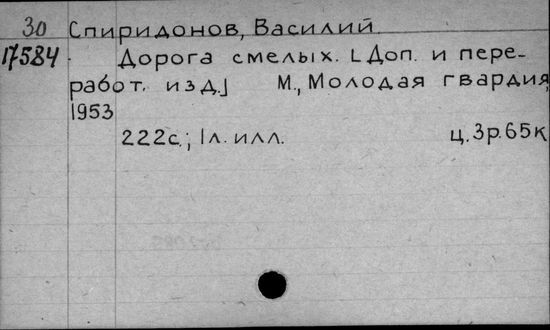 30 Спиридонов, Василий.
17584 Дорога смелых. [Доп. и пере-
работ. изд.] М., Молодая гвардия,
1953
222с.; 1л. илл. ц. 3р. 65к